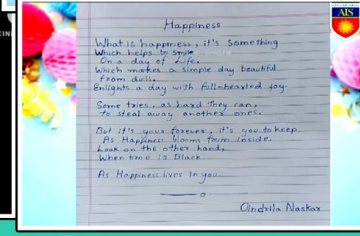 Happiness
What is happiness, it's something
Which helps to smile
On a day of Life.
Which makes a simple day beautiful
from dull,
Enlights a day with fullhearted joy.
Some tries, as hard they can,
to steal away another ones.
But it's yours forever, it's you to keep
As Happiness blooms from inside.
Look on the other hand,
When time is Black
As Happiness lives in you.
Oindrila Naskar
AIS